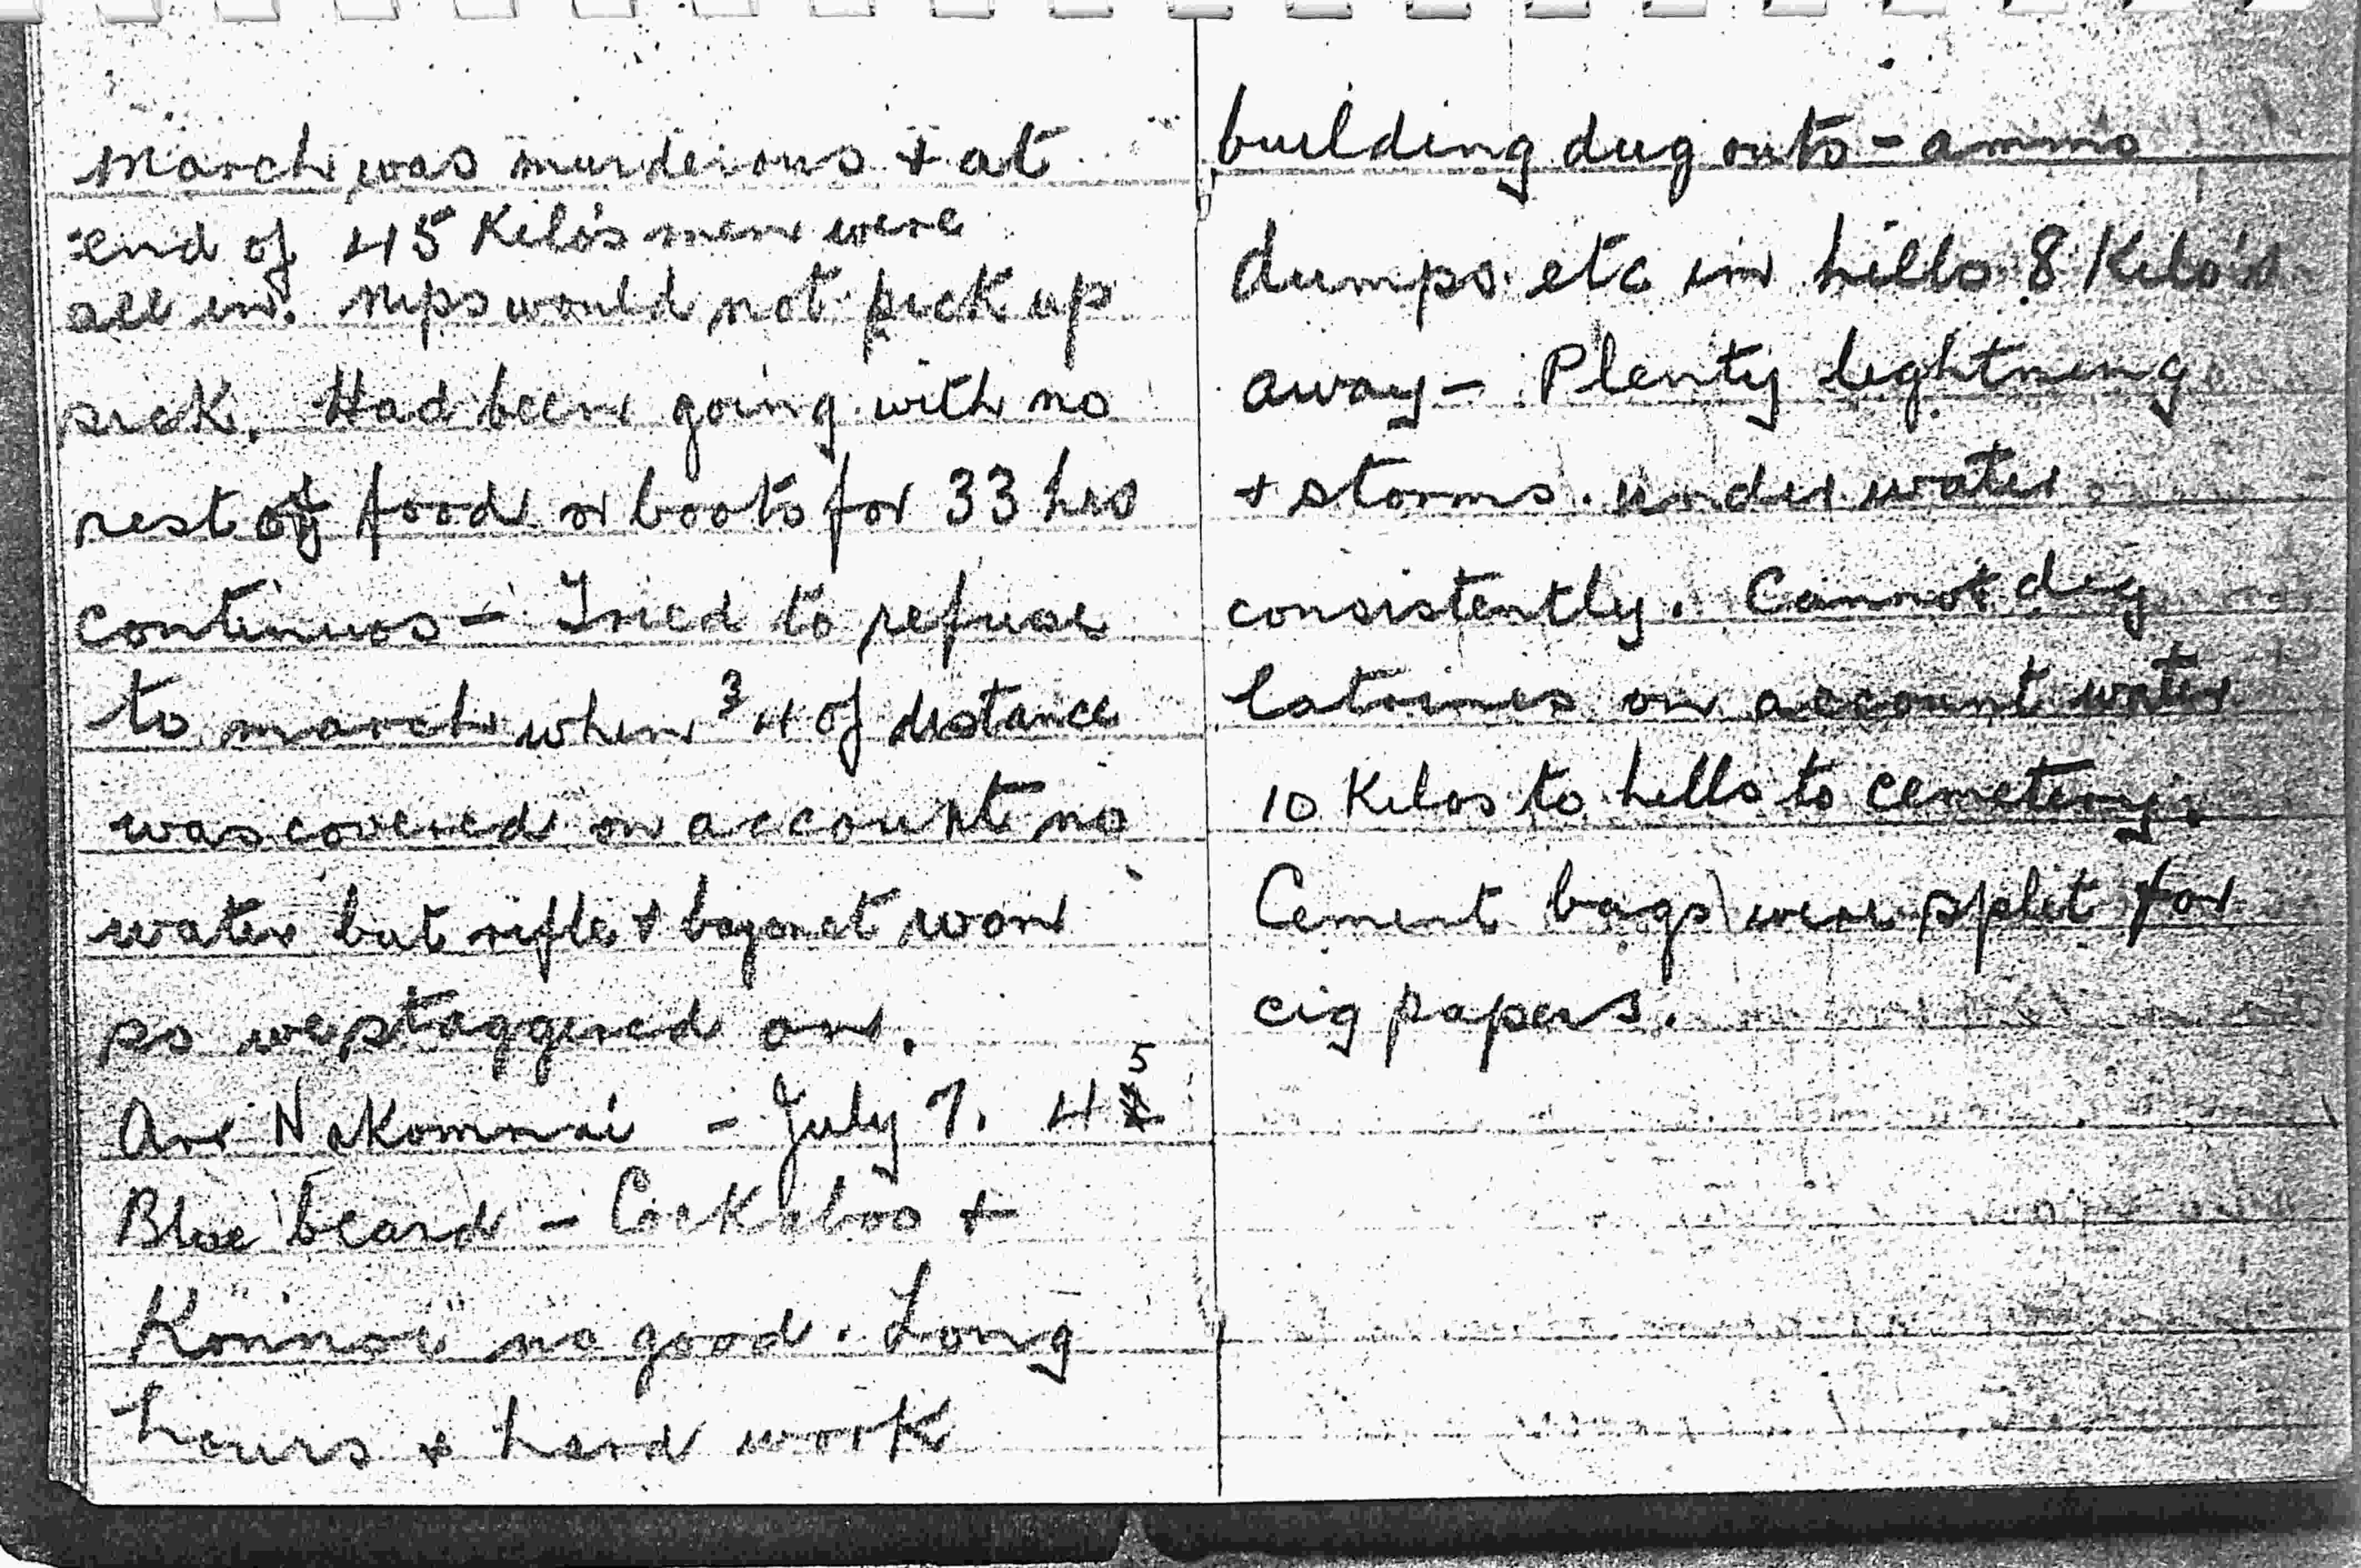 march was murderous + at
end of 45 Kilo's men were
all in. Nips would not pick up
sick. Had been going with no
rest of food or boots for 33 hrs
continuos - Tried to refuse
to march when 3/4 of distance
was covered on account no
water but rifle + bayonet won
so we staggered on.
Arr Nakomnai - July 7. 45
Blue beard - Cockaboo +
"Konnoi" no good. Long
hours + hard work
building dug outs - ammo
dumps etc in hills 8 Kilo's
away - Plenty lightning
+ storms. under water
consistently. Cannot dig
latrines on account water
10 Kilos to hills to cemetery.
Cement bags were split for
cig papers.